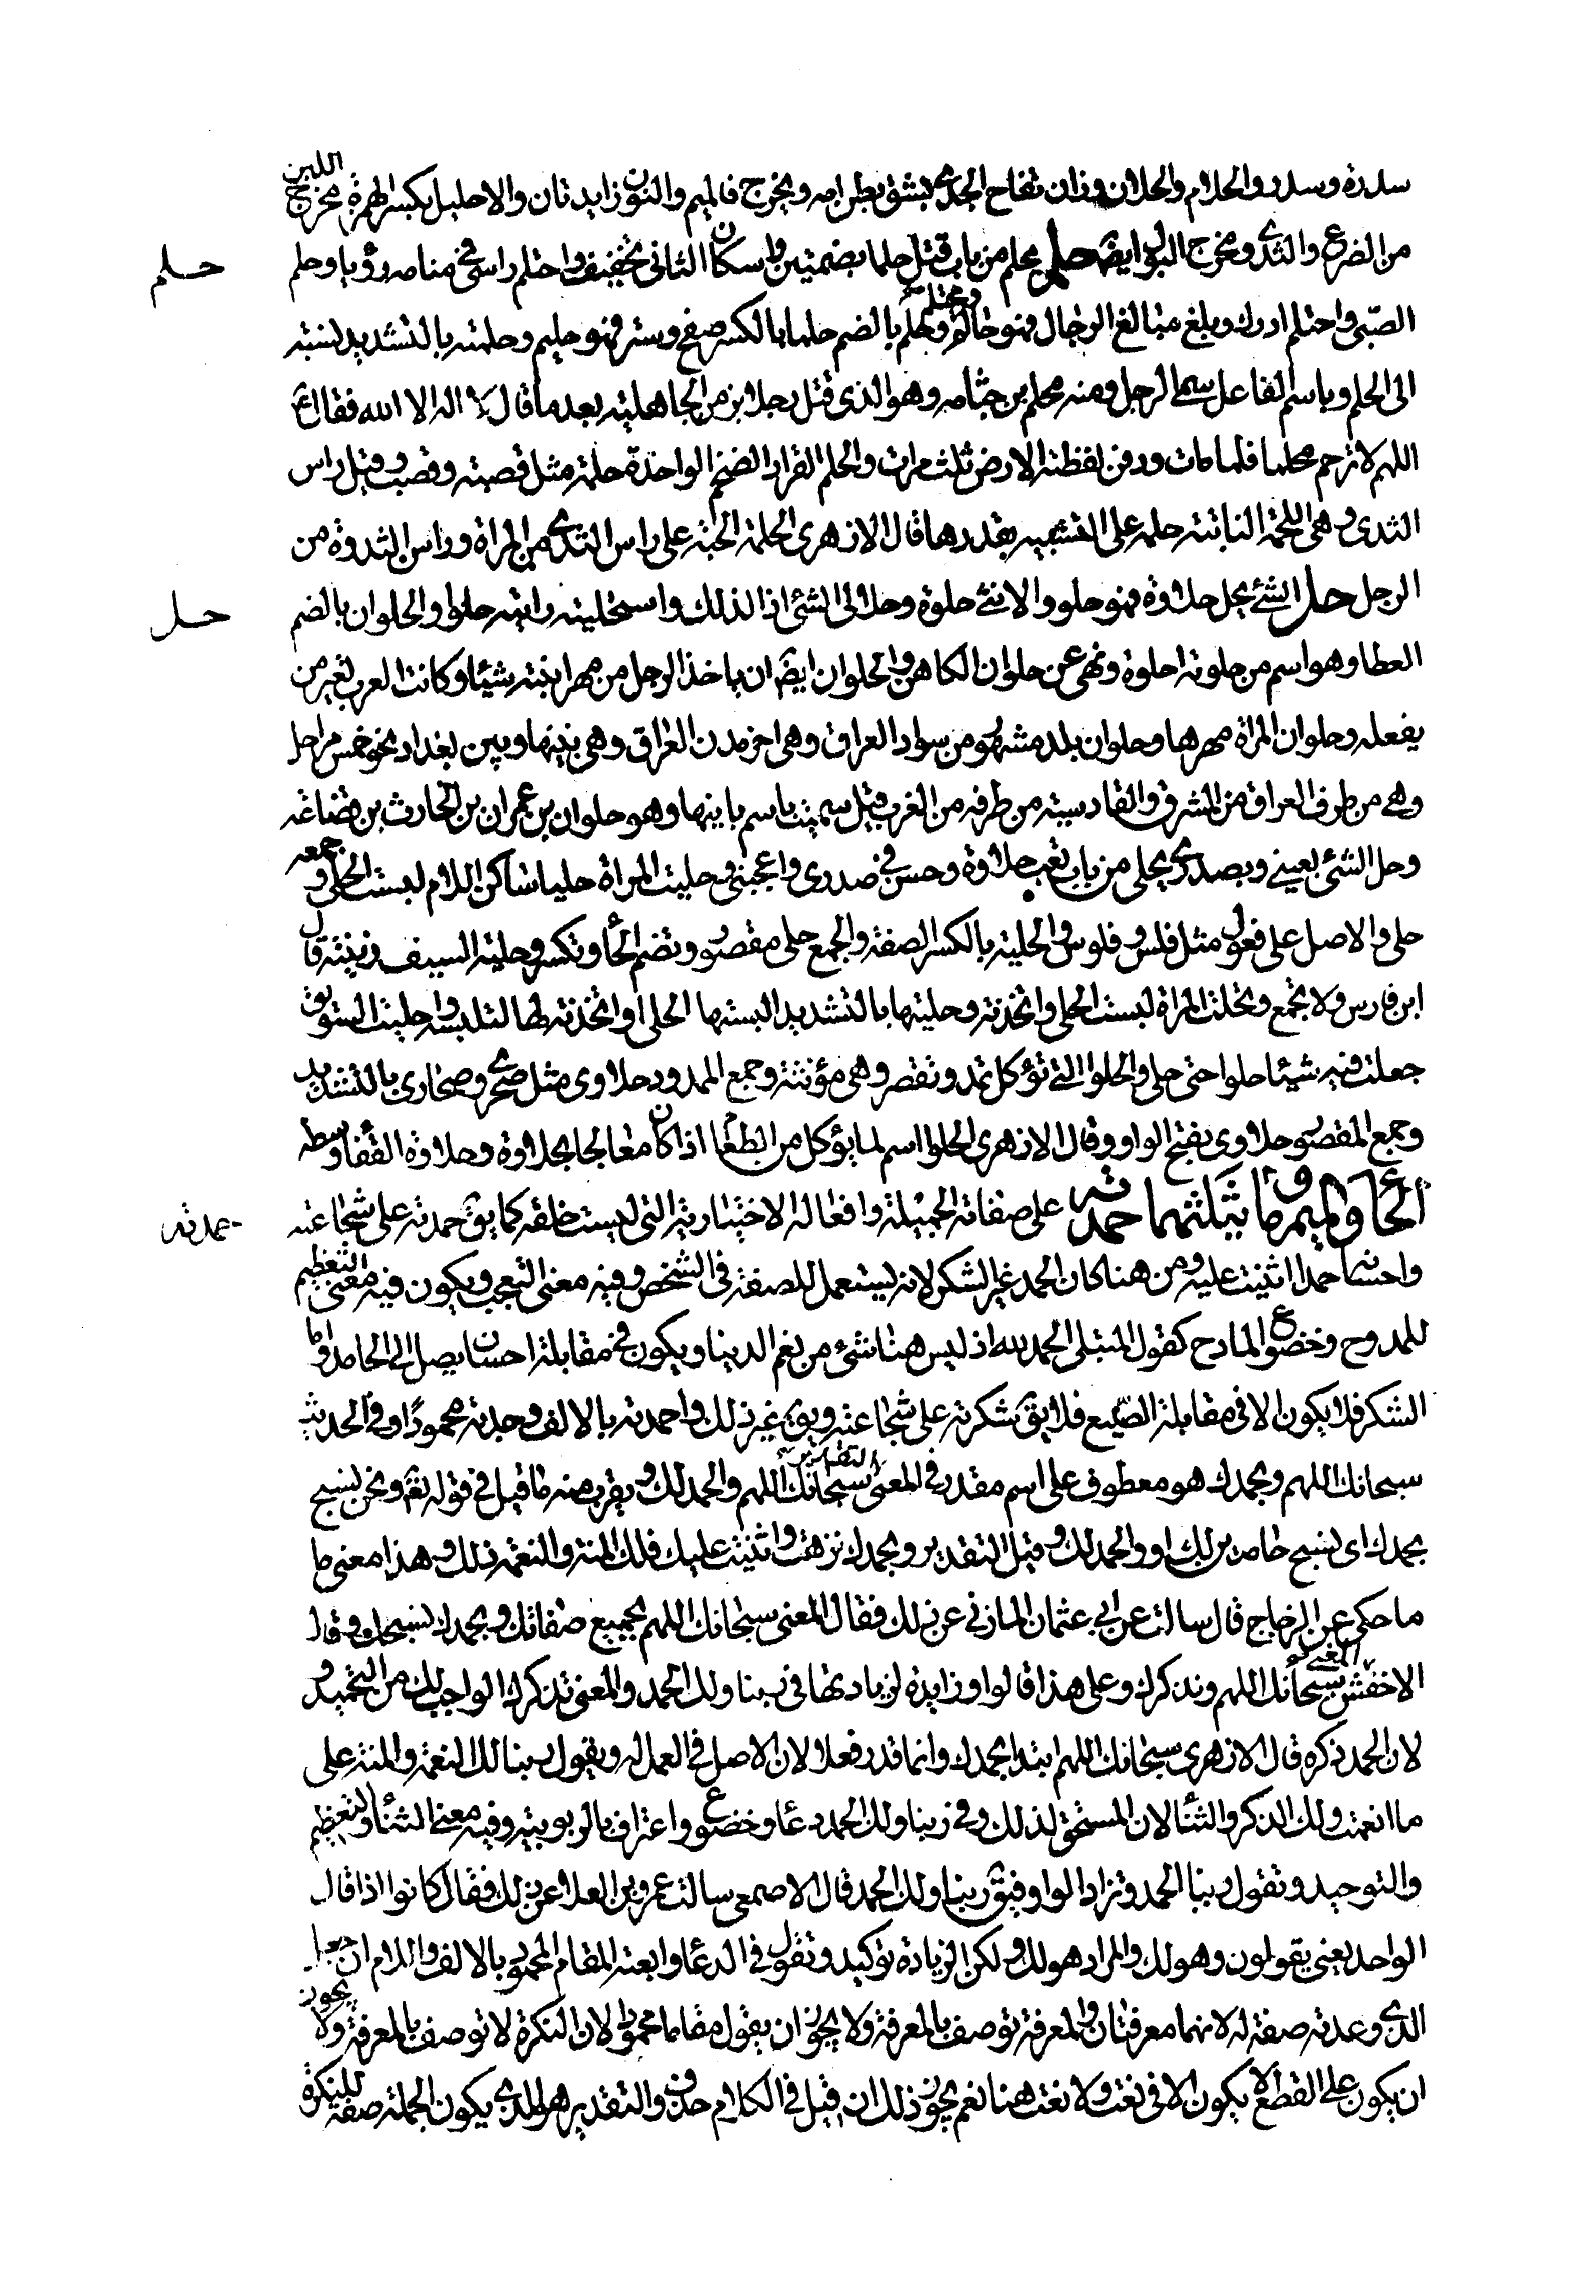 سدرة وسدر والحلام والحلان وزان تفاح الجدى يشق بطن امه ويخرج فالميم والنون زايدتان والاحليل بكسر الهمزة مخرج اللبن
من الضرع والثدى ومخرج البول ايضا حلم يحلم من باب قتل حلما بضمتين واسكان الثانى تخفيف واحتلم راى فى منامه رؤيا وحلم
حلم
الصبى واحتلم ادرك وبلغ مبالغ الرجال فهو حالم ومحتلم وحلم بالضم حلما بالكسر صفح وستر فهو حليم وحلمته بالتشديد نسبته
الى الحلم وباسم الفاعل سمى الرجل ومنه محلم بن جثامه وهو الذى قتل رجلا بذحل الجاهلية بعد ما قال لا اله الا الله فقال ع
اللهم لا ترحم محلما فلما مات ودفن لفظته الارض ثلث مرات والحلم القراد الضخم الواحدة حلمة مثل قصبة وقصب وقيل راس
الثدى وهى اللحمة الناتئة حلمة على التشبيه بقدرها قال الازهرى الحلمة الحبة على راس الثدى من المراة وراس الثندوة من
الرجل حل الشئ يحل حلاوة فهو حلو والانثى حلوة وحلا لى الشئ اذا لذلك واستحليته رايته حلوا والحلوان بالضم
حل
العطا وهو اسم من حلوته احلوه ونهى عن حلوان الكاهن والحلوان ايضا ان ياخذ الرجل من مهر ابنته شيئا وكانت العرب تعير من
يفعله وحلوان المراة مهرها وحلوان بلد مشهور من سواد العراق وهى اخر مدن العراق وهى بينها وبين بغداد نحو خمس مراحل
وهى من طرف العراق من المشرق والقادسية من طرفه من الغرب قيل سميت باسم بانيها وهو حلوان بن عمران بن الحارث بن قضاعه
وحل الشئ بعينى وبصدرى يحلى من باب تعب حلاوة وحسن فى صدرى واعجبنى وحليت المراة حليا ساكن اللام لبست الحلى وجمعه
حلى والاصل على فعول مثل فلس وفلوس والحلية بالكسر الصفة والجمع حلى مقصور وتضم الحاء وتكسر وحلية السيف زينته قال
ابن فارس ولا تجمع وتحلت المراة لبست الحلى واتخذته وحليتها بالتشديد البستها الحلى او اتخذته لها لتلبسه وحليت السويق
جعلت فيه شيئا حلوا حتى حلى والحلوا التى تؤكل تمد وتقصر وهى مؤنثة وجمع الممدود حلاوى مثل صحرى وصحارى بالتشديد
وجمع المقصور حلاوى بفتح الواو وقال الازهرى الحلوا اسم لما يؤكل من الطعام اذا كان معالجا بحلاوة وحلاوة القفا وسطه
الحاء والميم وما يثلثهما حمدته على صفاته الجميلة وافعاله الاختيارية التى ليست خلقه كما يق حمدته على شجاعته
حمدته
واحسانه حمدا اثنيت عليه ومن هنا كان الحمد غير الشكر لانه يستعمل للصفة فى الشخص وفيه معنى التعجب ويكون فيه معنى التعظيم
للممدوح وخضوع المادح كقول المبتلى الحمد لله اذ ليس هنا شئ من نعم الدنيا ويكون فى مقابلة احسان يصل الى الحامد واما
الشكر فلا يكون الا فى مقابلة الصنيع فلا يق شكرته على شجاعته ويق غير ذلك واحمدته بالالف وجدته محمودًا وفى الحديث
سبحانك اللهم وبحمدك هو معطوف على اسم مقدر فى المعنى التقدير سبحانك اللهم والحمد لك ويقرب منه ما قيل فى قوله تعا ونحن نسبح
بحمدك اى نسبح حامدين لك او والحمد لك وقيل التقدير وبحمدك نزهت واثنيت عليك فلك المنة والنعمة ذلك وهذا معنى ما
ما حكى عن الزجاج قال سالت عن ابى عثمان المازنى عن ذلك فقال المعنى سبحانك اللهم بجميع صفاتك وبحمدك سبحتك وقال
الاخفش المعنى سبحانك اللهم ونذكرك وعلى هذا قالوا وزايدة لزيادتها فى ربنا ولك الحمد والمعنى نذكرك الواجب لك من التحميد
لان الحمد ذكره قال الازهرى سبحانك اللهم ابتدا بحمدك وانما قدر فعلا لان الاصل فى العمل له ويقول ربنا لك النعمة والمنة على
ما انعمت ولك الذكر والثنا لان المستحق لذلك وفى ربنا ولك الحمد دعا وخضوع واعتراف بالربوبية وفيه معنى الثناء والتعظيم
والتوحيد وتقول ربنا الحمد وتزاد الواو فيق ربنا ولك الحمد قال الاصمعى سالت عمرو بن العلا عن ذلك فقال كانوا اذا قال
الواحد بعنى يقولون وهو لك والمراد هو لك ولكن الزيادة توكيد وتقول فى الدعا وابعثه المقام المحمود بالالف واللام ان جعل
الذى وعدته صفة له لانهما معرفتان والمعرفة توصف بالمعرفة ولا يجوز ان يقول مقاما محمودا لان النكرة لا توصف بالمعرفة ولا يجوز
ان يكون على القطع لا يكون الا فى نعت ولا نعت هنا نعم يجوز ذلك ان قيل فى الكلام حذف والتقدير هو الذى يكون الجملة صفة للنكرة